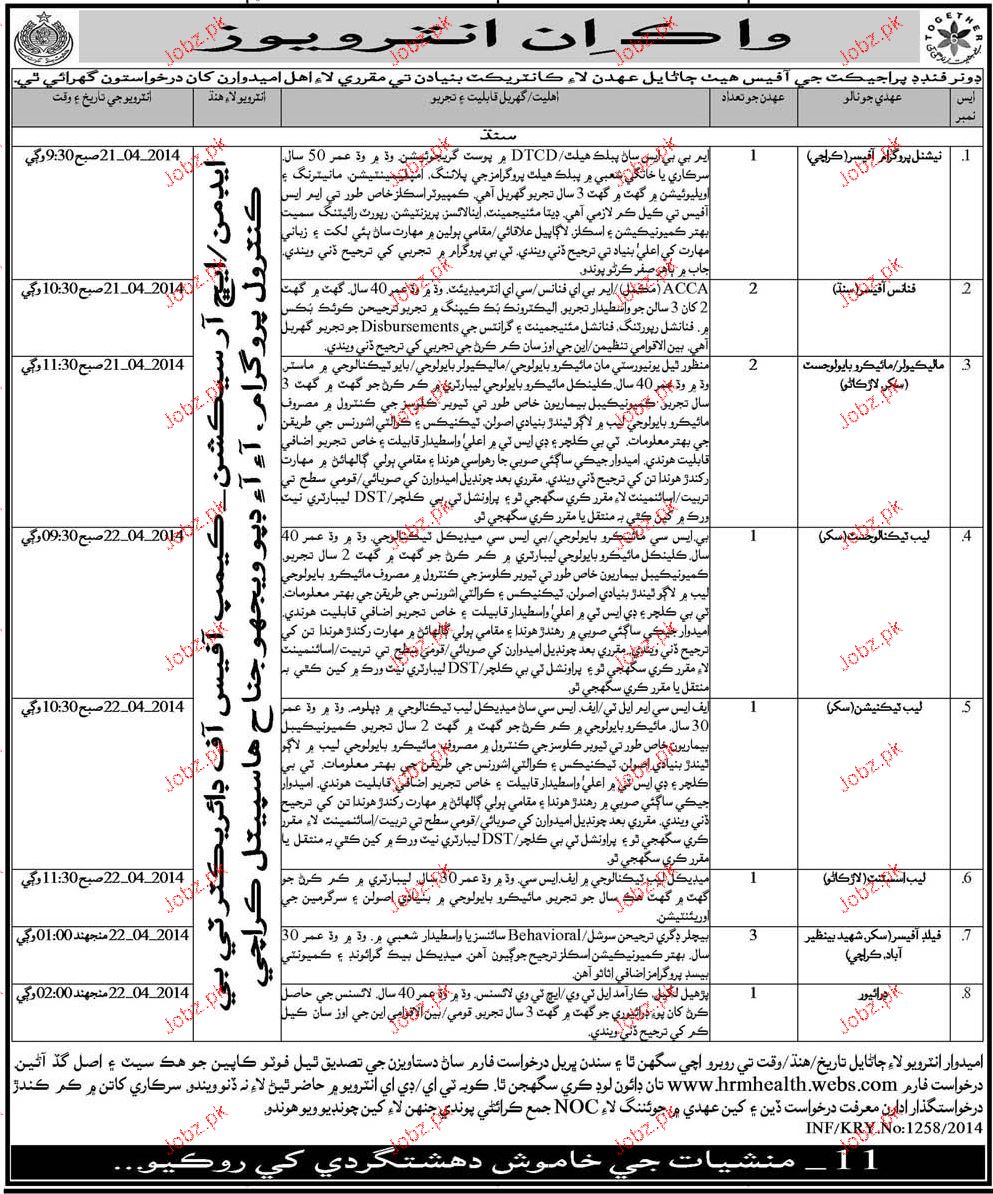 واڪ اِن انٽرويوز
TOGETHER
ڊونر فنڊڊ پراجيڪٽ جي آفيس هيٺ ڄاڻايل عهدن لاءِ ڪانٽريڪٽ بنيادن تي مقرري لاءِ اهل اميدوارن کان درخواستون گهرائي ٿي.
ايس نمبر
عهدي جو نالو
عهدن جو تعداد
اهليت/گهربل قابليت ۽ تجربو
انٽرويو لاءِ هنڌ
انٽرويو جي تاريخ ۽ وقت
سنڌ
ايڊمن/ايڇ آر سيڪشن_ڪيمپ آفيس آف ڊائريڪٽر ٽي بي
ڪنٽرول پروگرام، آءِ آءِ ڊيپو ويجهو جناح هاسپيٽل ڪراچي
.1
نيشنل پروگرام آفيسر (ڪراچي)
1
ايم بي بي ايس سان پبلڪ هيلٿ/DTCD ۾ پوسٽ گريجوئيشن. وڌ ۾ وڌ عمر 50 سال.
سرڪاري يا خانگي شعبي ۾ پبلڪ هيلٿ پروگرامز جي پلاننگ، امپليمينٽيشن، مانيٽرنگ ۽
اويليوئيشن ۾ گهٽ ۾ گهٽ 3 سال تجربو گهربل آهي. ڪمپيوٽر اسڪلز خاص طور تي ايم ايس
آفيس تي ڪيل ڪم لازمي آهي. ڊيٽا مئنيجمينٽ، اينالائسز، پريزنٽيشن، رپورٽ رائيٽنگ سميت
بهتر ڪميونيڪيشن ۽ اسڪلز. لاڳاپيل علائقائي/مقامي ٻولين ۾ مهارت سان ٻئي لکت ۽ زباني
مهارت کي اعليٰ بنياد تي ترجيح ڏني ويندي. ٽي بي پروگرام ۾ تجربي کي ترجيح ڏني ويندي.
جاب ۾ ٻاهر سفر ڪرڻو پوندو.
21_04_2014 صبح 9:30 وڳي
.2
فنانس آفيسر (سنڌ)
2
ACCA (مڪمل)/ايم بي اي فنانس/سي اي انٽرميڊيئٽ. وڌ ۾ وڌ عمر 40 سال. گهٽ ۾ گهٽ
2 کان 3 سالن جو واسطيدار تجربو. اليڪٽرونڪ بُڪ ڪيپنگ ۾ تجربو ترجيحن ڪوئڪ بُڪس
۾. فنانشل رپورٽنگ، فنانشل مئنيجمينٽ ۽ گرانٽس جي Disbursements جو تجربو گهربل
آهي. بين الاقوامي تنظيمن/اين جي اوز سان ڪم ڪرڻ جي تجربي کي ترجيح ڏني ويندي.
21_04_2014 صبح 10:30 وڳي
.3
ماليڪيولر/مائيڪرو بايولوجسٽ (سکر، لاڙڪاڻو)
2
منظور ٿيل يونيورسٽي مان مائيڪرو بايولوجي/ماليڪيولر بايولوجي/بايو ٽيڪنالوجي ۾ ماسٽر.
وڌ ۾ وڌ عمر 40 سال. ڪلينڪل مائيڪرو بايولوجي ليبارٽري ۾ ڪم ڪرڻ جو گهٽ ۾ گهٽ 3
سال تجربو. ڪميونيڪيبل بيماريون خاص طور تي ٽيوبر ڪلوسز جي ڪنٽرول ۾ مصروف
مائيڪرو بايولوجي ليب ۾ لاڳو ٿيندڙ بنيادي اصولن، ٽيڪنيڪس ۽ ڪوالٽي اشورنس جي طريقن
جي بهتر معلومات. ٽي بي ڪلچر ۽ ڊي ايس ٽي ۾ اعليٰ واسطيدار قابيلت ۽ خاص تجربو اضافي
قابليت هوندي. اميدوار جيڪي ساڳئي صوبي جا رهواسي هوندا ۽ مقامي ٻولي ڳالهائڻ ۾ مهارت
رکندڙ هوندا تن کي ترجيح ڏني ويندي. مقرري بعد چونڊيل اميدوارن کي صوبائي/قومي سطح تي
تربيت/اسائنمينٽ لاءِ مقرر ڪري سگهجي ٿو ۽ پراونشل ٽي بي ڪلچر/DST ليبارٽري نيٽ
ورڪ ۾ کين ڪٿي بہ منتقل يا مقرر ڪري سگهجي ٿو.
21_04_2014 صبح 11:30 وڳي
.4
ليب ٽيڪنالوجسٽ (سکر)
1
بي ايس سي مائيڪرو بايولوجي/بي ايس سي ميڊيڪل ٽيڪنالوجي. وڌ ۾ وڌ عمر 40
سال. ڪلينڪل مائيڪرو بايولوجي ليبارٽري ۾ ڪم ڪرڻ جو گهٽ ۾ گهٽ 2 سال تجربو.
ڪميونيڪيبل بيماريون خاص طور تي ٽيوبر ڪلوسز جي ڪنٽرول ۾ مصروف مائيڪرو بايولوجي
ليب ۾ لاڳو ٿيندڙ بنيادي اصولن، ٽيڪنيڪس ۽ ڪوالٽي اشورنس جي طريقن جي بهتر معلومات.
ٽي بي ڪلچر ۽ ڊي ايس ٽي ۾ اعليٰ واسطيدار قابيلت ۽ خاص تجربو اضافي قابليت هوندي.
اميدوار جيڪي ساڳئي صوبي ۾ رهندڙ هوندا ۽ مقامي ٻولي ڳالهائڻ ۾ مهارت رکندڙ هوندا تن کي
ترجيح ڏني ويندي. مقرري بعد چونڊيل اميدوارن کي صوبائي/قومي سطح تي تربيت/اسائنمينٽ
لاءِ مقرر ڪري سگهجي ٿو ۽ پراونشل ٽي بي ڪلچر/DST ليبارٽري نيٽ ورڪ ۾ کين ڪٿي بہ
منتقل يا مقرر ڪري سگهجي ٿو.
22_04_2014 صبح 09:30 وڳي
.5
ليب ٽيڪنيشن (سکر)
1
ايف ايس سي ايم ايل ٽي/ايف ايس سي سان ميڊيڪل ليب ٽيڪنالوجي ۾ ڊپلومہ. وڌ ۾ وڌ عمر
30 سال. مائيڪرو بايولوجي ۾ ڪم ڪرڻ جو گهٽ ۾ گهٽ 2 سال تجربو. ڪميونيڪيبل
بيماريون خاص طور تي ٽيوبر ڪلوسز جي ڪنٽرول ۾ مصروف مائيڪرو بايولوجي ليب ۾ لاڳو
ٿيندڙ بنيادي اصولن، ٽيڪنيڪس ۽ ڪوالٽي اشورنس جي طريقن جي بهتر معلومات. ٽي بي
ڪلچر ۽ ڊي ايس ٽي ۾ اعليٰ واسطيدار قابيلت ۽ خاص تجربو اضافي قابليت هوندي. اميدوار
جيڪي ساڳئي صوبي ۾ رهندڙ هوندا ۽ مقامي ٻولي ڳالهائڻ ۾ مهارت رکندڙ هوندا تن کي ترجيح
ڏني ويندي. مقرري بعد چونڊيل اميدوارن کي صوبائي/قومي سطح تي تربيت/اسائنمينٽ لاءِ مقرر
ڪري سگهجي ٿو ۽ پراونشل ٽي بي ڪلچر/DST ليبارٽري نيٽ ورڪ ۾ کين ڪٿي بہ منتقل يا
مقرر ڪري سگهجي ٿو.
22_04_2014 صبح 10:30 وڳي
.6
ليب اسسٽنٽ (لاڙڪاڻو)
1
ميڊيڪل ليب ٽيڪنالوجي ۾ ايف ايس سي. وڌ ۾ وڌ عمر 30 سال. ليبارٽري ۾ ڪم ڪرڻ جو
گهٽ ۾ گهٽ هڪ سال جو تجربو. مائيڪرو بايولوجي ۾ بنيادي اصولن ۽ سرگرمين جي
اورينٽيشن.
22_04_2014 صبح 11:30 وڳي
.7
فيلڊ آفيسر (سکر، شهيد بينظير آباد، ڪراچي)
3
بيچلر ڊگري ترجيحن سوشل/Behavioral سائنسز يا واسطيدار شعبي ۾. وڌ ۾ وڌ عمر 30
سال. بهتر ڪميونيڪيشن اسڪلز ترجيح جوڳيون آهن. ميڊيڪل بيڪ گرائونڊ ۽ ڪميونٽي
بيسڊ پروگرامز اضافي اثاثو آهن.
22_04_2014 منجهند 01:00 وڳي
.8
ڊرائيور
1
پڙهيل لکيل. ڪارآمد ايل ٽي وي/ايڇ ٽي وي لائسنس. وڌ ۾ وڌ عمر 40 سال. لائسنس جي حاصل
ڪرڻ کان پوءِ ڊرائيوري جو گهٽ ۾ گهٽ 3 سال تجربو. قومي/بين الاقوامي اين جي اوز سان ڪيل
ڪم کي ترجيح ڏني ويندي.
22_04_2014 منجهند 02:00 وڳي
اميدوار انٽرويو لاءِ ڄاڻايل تاريخ/هنڌ/وقت تي روبرو اچي سگهن ٿا ۽ سندن ڀريل درخواست فارم سان دستاويزن جي تصديق ٿيل فوٽو ڪاپين جو هڪ سيٽ ۽ اصل گڏ آڻين.
درخواست فارم www.hrmhealth.webs.com تان ڊائون لوڊ ڪري سگهجن ٿا. ڪوبہ ٽي اي/ڊي اي انٽرويو ۾ حاضر ٿيڻ لاءِ نہ ڏنو ويندو. سرڪاري کاتن ۾ ڪم ڪندڙ
درخواستگذار ادارن معرفت درخواست ڏين ۽ کين عهدي ۾ جوئننگ لاءِ NOC جمع ڪرائڻي پوندي جنهن لاءِ کين چونڊيو ويو هوندو.
INF/KRY.No:1258/2014
11_ منشيات جي خاموش دهشتگردي کي روڪيو...
Jobz.pk